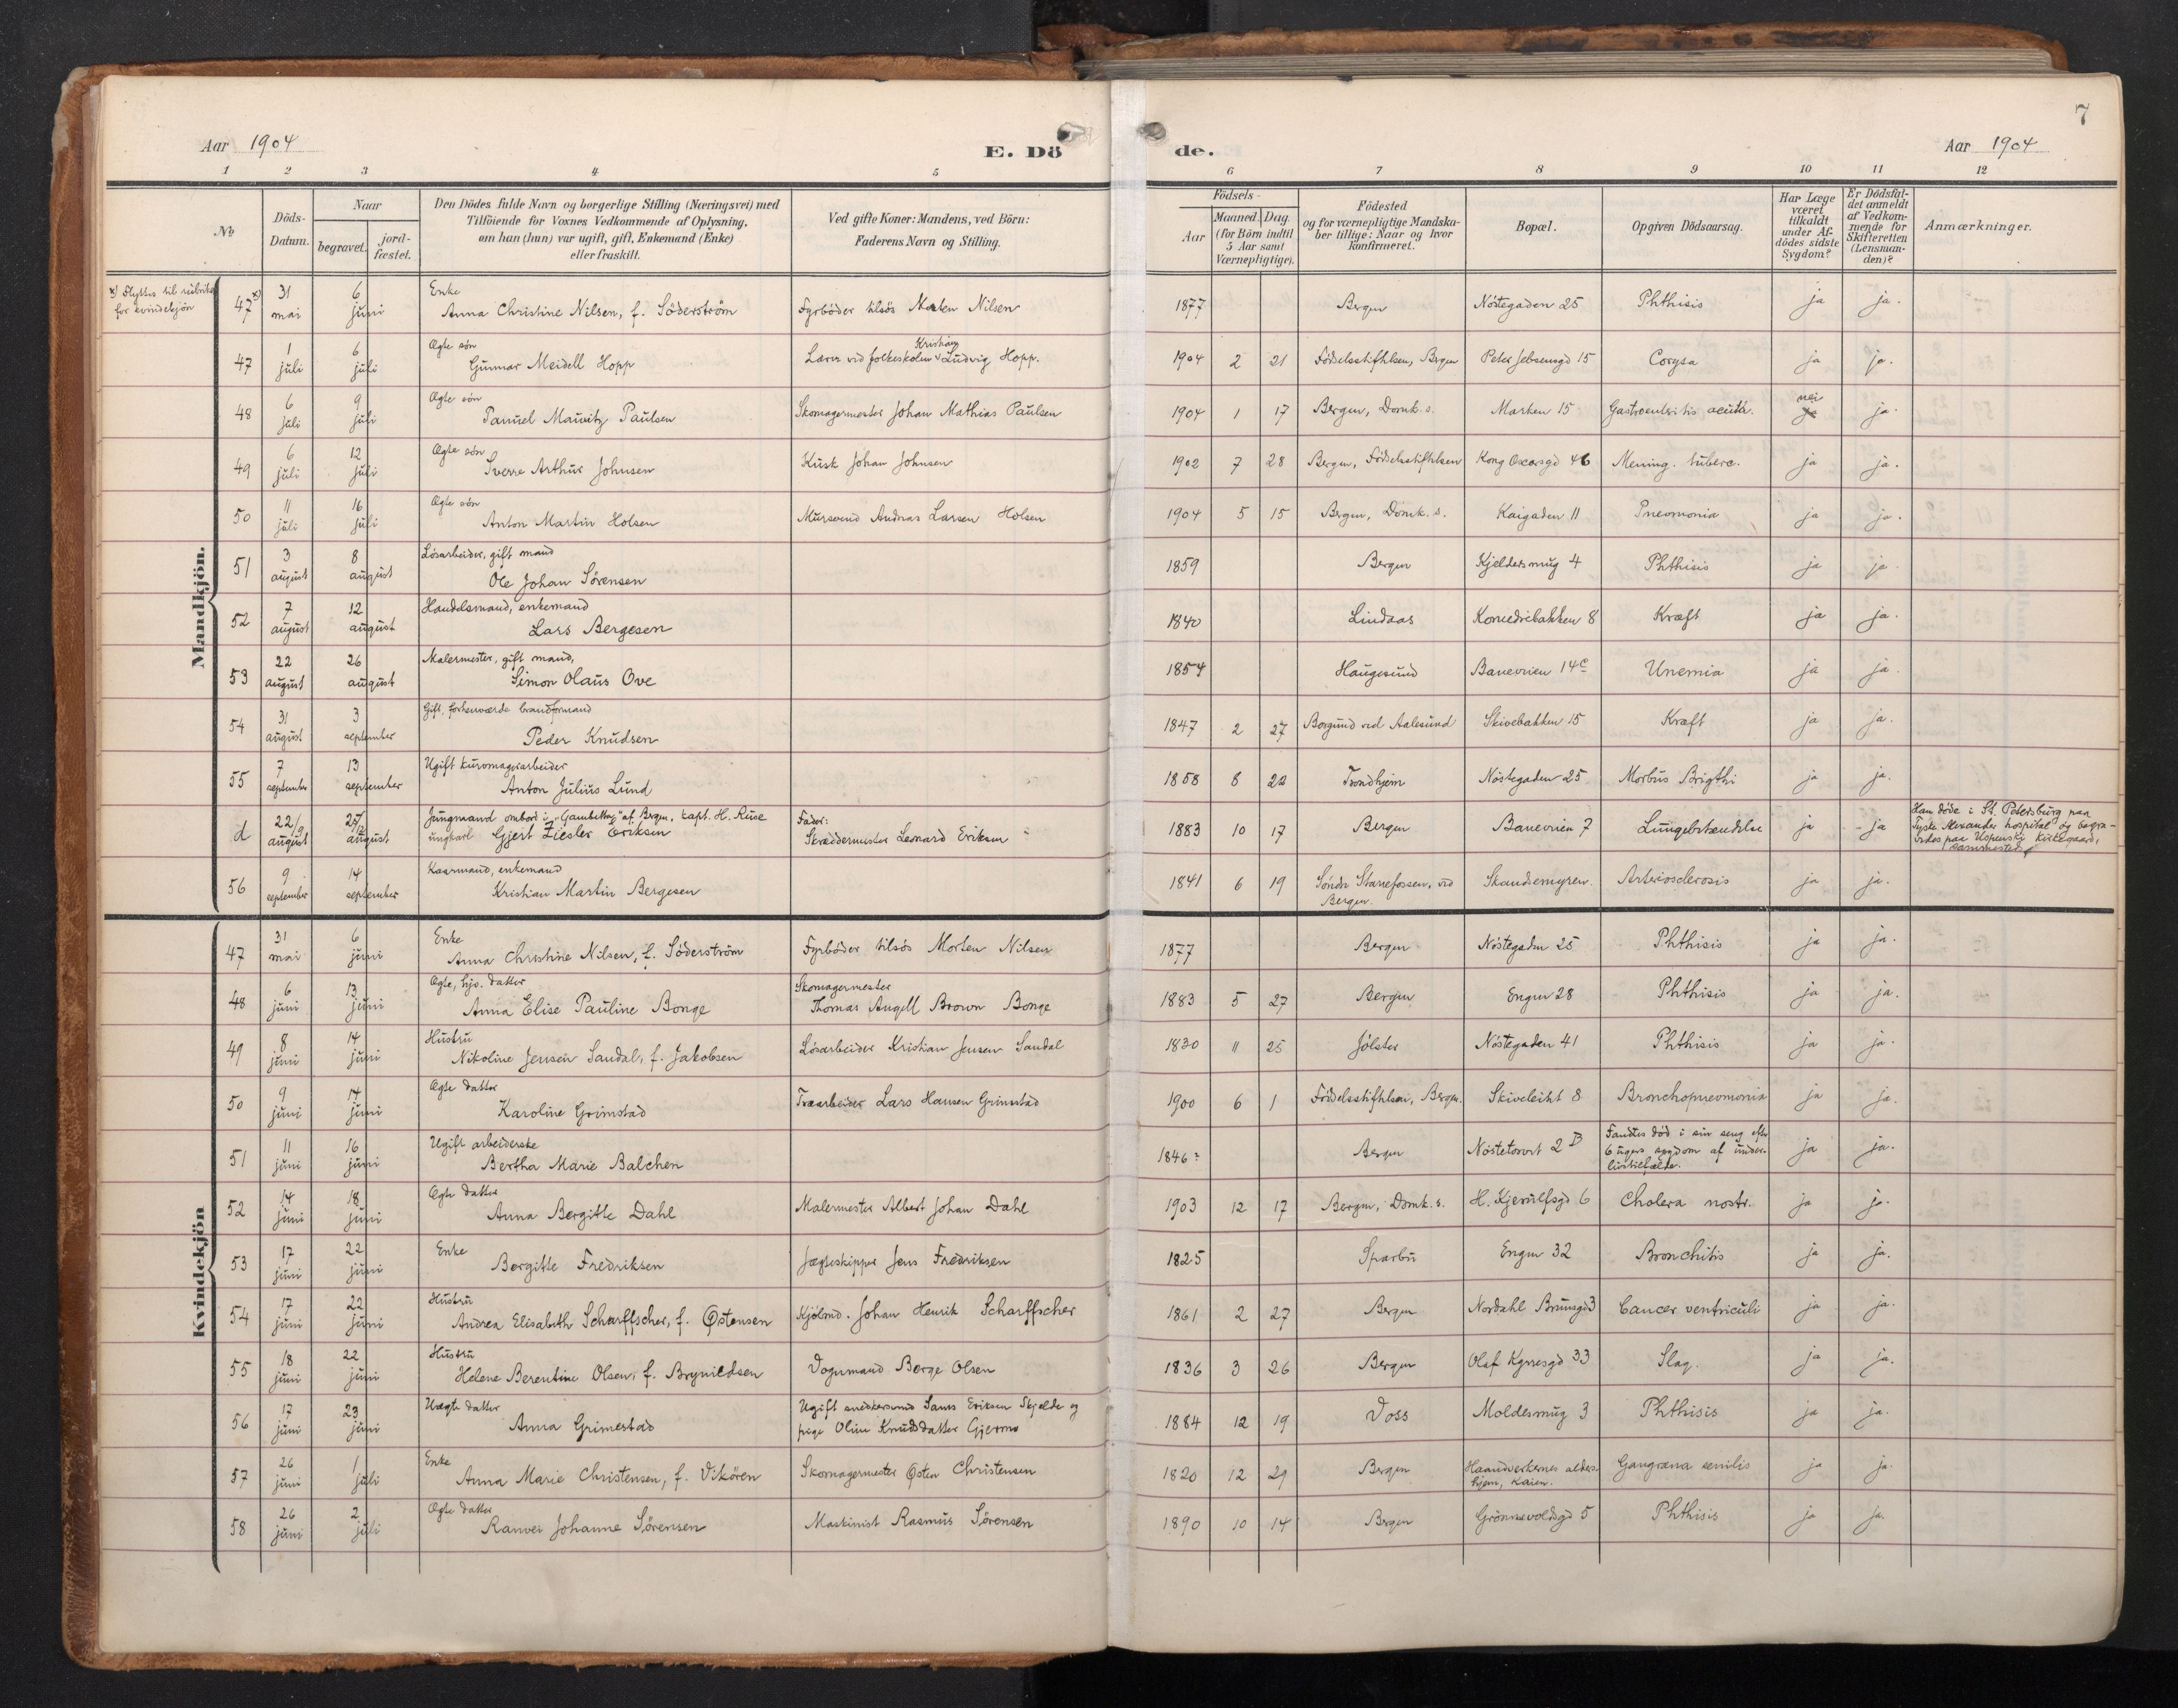 7
Aar 1904 E. Dö de. Aar 1904
1 2 3 4 5 6 7 8 9 10 11 12
No.
Döds-
Datum.
Naar
begravet.
jord-
fæstet.
Den Dödes fulde Navn og borgerlige Stilling (Næringsvei) med
Tilföiende for Voxnes Vedkommende af Oplysning,
om han (hun) var ugift, gift, Enkemand (Enke)
eller fraskilt.
Ved gifte Koner: Mandens, ved Börn:
Faderens Navn og Stilling.
Födsels-
Aar
Maaned. Dag.
(for Börn indtil
5 Aar samt
Værnepligtige).
Födested
og for værnepligtige Mandska-
ber tillige: Naar og hvor
konfirmeret.
Bopæl.
Opgiven Dödsaarsag.
Har Læge
været
tilkaldt
under Af-
dödes sidste
Sygdom?
Er Dödsfal-
det anmeldt
af Vedkom-
mende for
Skifteretten
(Lensman-
den)?
Anmærkninger.
x) Flyttes til rubrik
for kvindekjön
Mandkjön.
47 x) 31 mai 6 juni Enke
Anna Christine Nilsen, f. Söderström Fyrböder tilsös Morten Nilsen 1877 Bergen Nöstegaden 25 Phthisis ja ja.
47 1 juli 6 juli Ægte sön
Gunnar Meidell Hopp Lærer ved folkeskolen Kristian Ludvig Hopp. 1904 2 21 Födselsstiftelsen, Bergen Peter Jebsensgd 15 Coryza ja ja.
48 6 juli 9 juli Ægte sön
Pauuel Mauritz Paulsen Skomagermester Johan Mathias Paulsen 1904 1 17 Bergen, Domk. s. Marken 15 Gastroenteritis acuta. nei ja.
49 6 juli 12 juli Ægte sön
Sverre Arthur Johnsen Kusk Johan Johnsen 1902 7 28 Bergen, Födselsstiftelsen Kong Oscarsgd 46 Mening. tuberc. ja ja.
50 11 juli 16 juli Ægte sön
Anton Martin Holsen Mursvend Andreas Larsen Holsen 1904 5 15 Bergen, Domk. s. Kaigaden 11 Pneomonia ja ja.
51 3 august 8 august Lösarbeider, gift mand
Ole Johan Sörensen 1859 Bergen Kjeldersmug 4 Phthisis ja ja
52 7 august 12 august Handelsmand, enkemand
Lars Bergesen 1840 Lindaas Komediebakken 8 Kræft ja ja.
53 22 august 26 august Malermester, gift mand,
Simon Olaus Ove 1854 Haugesund Baneveien 14c Uremia ja ja.
54 31 august 3 september Gift, forhenværde brandformand
Peder Knudsen 1847 2 27 Borgund ved Aalesund Skivebakken 15 Kræft ja ja.
55 7 september 13 september Ugift kuromagerarbeider
Anton Julius Lund 1858 8 22 Trondhjem Nöstegaden 25 Morbus Brigthi ja ja.
d 22/9 august august Jungmand ombord i "Gambetta" af Bergen, kapt. H. Ruse
ungkarl Gjert Ziesler Eriksen Fader:
Skræddermester Leonard Eriksen 1883 10 17 Bergen Baneveien 7 Lungebetændelse ja ja Han döde i St. Petersburg paa
Tyske Alexander hospital og begra-
vedes paa Uspenski kirkegaard,
sammesteds
56 9 september 14 september Kaarmand, enkemand
Kristian Martin Bergesen 1841 6 19 Söndre Starefossen, ved
Bergen. Skandsemyren. Arteriosclerosis ja ja.
Kvindekjön
47 31 mai 6 juni Enke
Anna Christine Nilsen, f. Söderström Fyrböder tilsös Morten Nilsen 1877 Bergen Nöstegaden 25 Phthisis ja ja.
48 6 juni 13 juni Ægte, hjv. datter
Anna Elise Pauline Bonge Skomagermester
Thomas Angell Brown Bonge 1883 5 27 Bergen Engen 28 Phthisis ja ja.
49 8 juni 14 juni Hustru
Nikoline Jensen Sandal, f. Jakobsen Lösarbeider Kristian Jensen Sandal 1830 11 25 Jölster Nöstegaden 41 Phthisis ja ja.
50 9 juni 14 juni Ægte datter
Karoline Grimstad Træarbeider Lars Hansen Grimstad 1900 6 1 Födselsstiftelsen, Bergen. Skiveleiht 8 Bronchopneomonia ja ja.
51 11 juni 16 juni Ugift arbeiderske
Bertha Marie Balchen 1846? Bergen Nöstetorvt 2 B Fandtes död i sin seng efter
6 ugers sygdom af under-
livstilfælde. ja ja.
52 14 juni 18 juni Ægte datter
Anna Bergitte Dahl Malermester Albert Johan Dahl 1903 12 17 Bergen, Domk. s. H. Kjerulfsgd 6 Cholera nostr. ja ja.
53 17 juni 22 juni Enke
Bergitte Fredriksen Jægteskipper Jens Fredriksen 1825 Sparbu Engen 32 Bronchitis ja ja.
54 17 juni 22 juni Hustru
Andrea Elisabeth Scharffscher, f. Østensen Kjölmd. Johan Henrik Scharffscher 1861 2 27 Bergen Nordahl Brunsgd 3 Cancer ventriculi ja ja.
55 18 juni 22 juni Hustru
Helene Berentine Olsen, f. Brynildsen Vognmand Børge Olsen 1836 3 26 Bergen Olaf Kyrresgd 33 Slag. ja ja.
56 17 juni 23 juni Uægte datter
Anna Grimestad Ugift snedkersvend Sams Eriksen Skjelde og
pige Oline Knudsdatter Gjerme 1884 12 19 Voss Moldesmug 3 Phthisis ja ja.
57 26 juni 1 juli Enke
Anna Marie Christensen, f. Vikören Skomagermester Østen Christensen 1820 12 29 Bergen Haandverkernes alders-
hjem, Kaien. Gangræna senilis ja ja.
58 26 juni 2 juli Ægte datter
Ranvei Johanne Sörensen Maskinist Rasmus Sörensen 1890 10 14 Bergen Grönnevoldsgd 5 Phthisis ja ja.